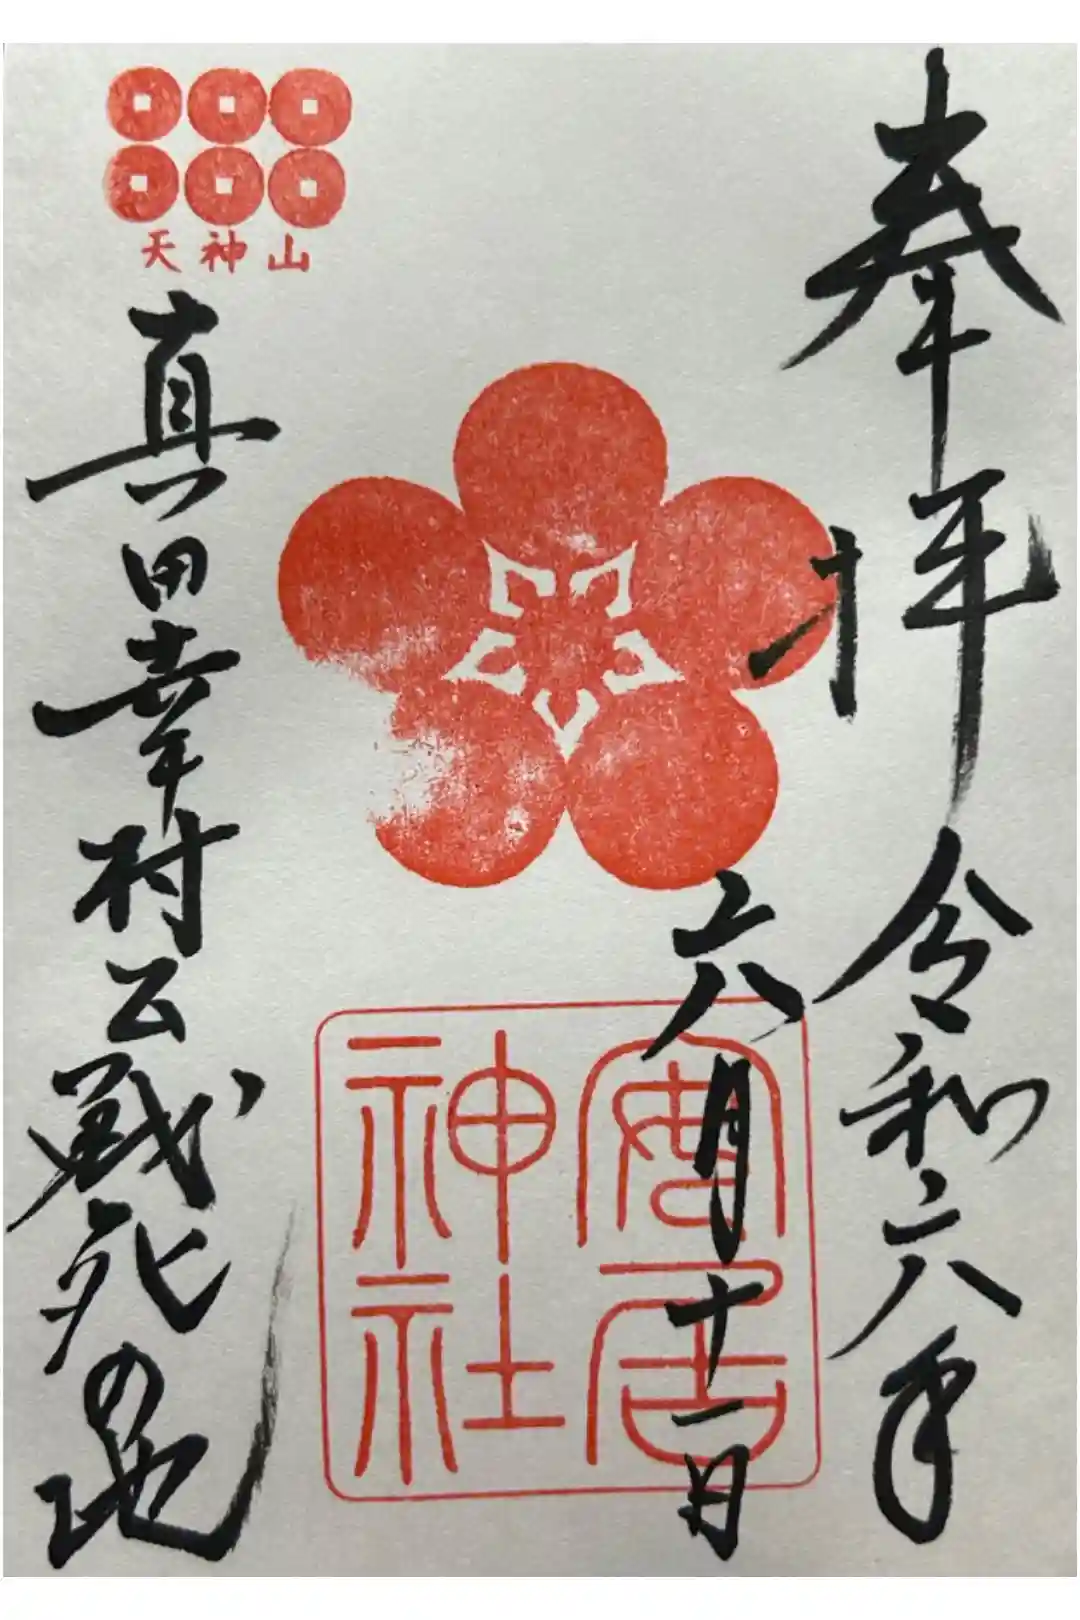 奉拝 令和六年
六月十一日
安居
神社
天神山
真田幸村公戦死の地